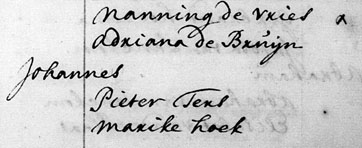 Nanning de Vries x
Adriana de Bruijn
Johannes
Pieter Ters
Marike hoek